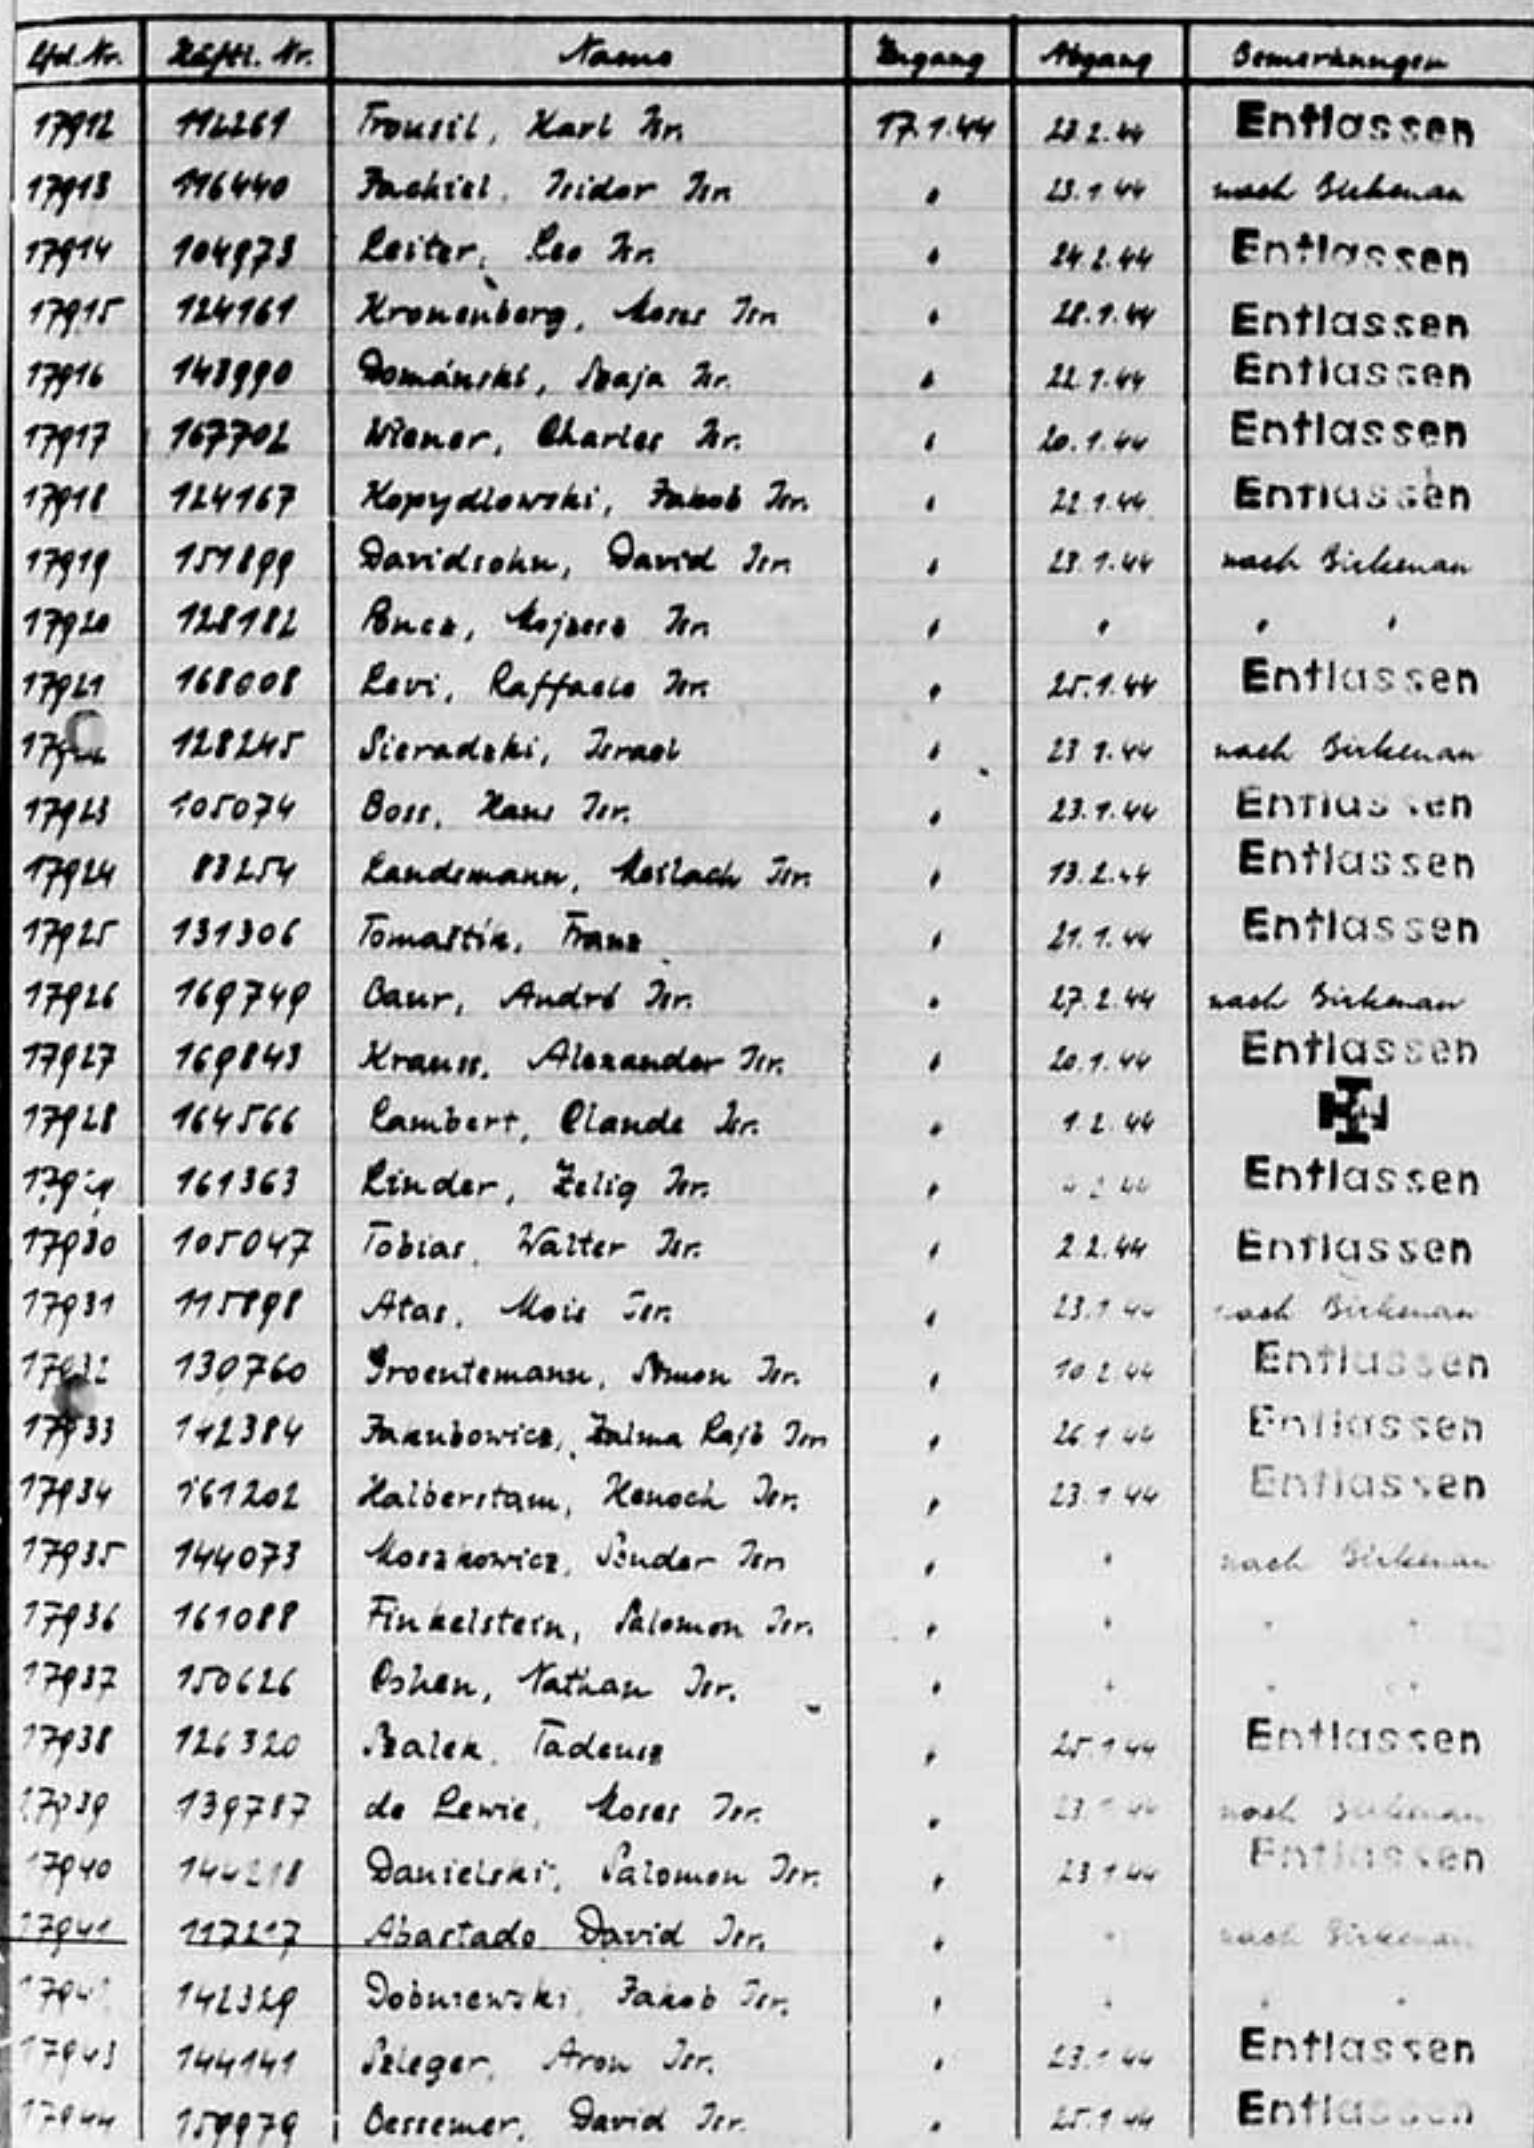 Lfd. Nr. Häftl. Nr. Name Zugang Abgang Bemerkungen
17912 112261 Trousil, Karl Isr. 17.1.44 23.2.44 Entlassen
17913 116440 Jachiel, Isidor Isr. " 23.1.44 nach Birkenau
17914 104973 Leiter, Leo Isr. " 24.2.44 Entlassen
17915 124161 Kronenberg, Moses Isr. " 28.1.44 Entlassen
17916 143990 Dománski, Szaja Isr. " 22.1.44 Entlassen
17917 167702 Wiener, Charles Isr. " 20.1.44 Entlassen
17918 124167 Kopydlowski, Jakob Isr. " 22.1.44 Entlassen
17919 151899 Davidsohn, David Isr. " 23.1.44 nach Birkenau
17920 128182 Mojzesz Isr. " " " "
17921 168008 Levi, Raffaele Isr. " 25.1.44 Entlassen
128245 Sieradzki, Israel " 23.1.44 nach Birkenau
17923 105074 Boss, Hans Isr. " 23.1.44 Entlassen
17924 83254 Landsmann, Meilach Isr. " 13.2.44 Entlassen
17925 131306 Tomaštik, Franz " 21.1.44 Entlassen
17926 169749 Baur, André Isr. " 27.2.44 nach Birkenau
17927 169843 Krauss, Alexander Isr. " 20.1.44 Entlassen
17928 164566 Lambert, Claude Isr. " 1.2.44
161363 Linder, Zelig Isr. " Entlassen
17930 105047 Tobias, Walter Isr. " 2.2.44 Entlassen
17931 115898 Atas, Mois Isr. " 23.1.44 nach Birkenau
17932 130760 Groentemann, Simon Isr. " 10.2.44 Entlassen
17933 142384 Jakubowicz, Zalma Lajb Isr. " 26.1.44 Entlassen
17934 161202 Halberstam, Henoch Isr. " 23.1.44 Entlassen
17935 144073 Moszkowicz, Sender Isr. " " nach Birkenau
17936 161088 Finkelstein, Salomon Isr. " " " "
17937 150626 Oshen, Nathan Isr. " " " "
17938 126320 Szalek, Tadeusz " 25.1.44 Entlassen
17939 139787 de Lewie, Moses Isr. " 23.1.44 nach Birkenau
17940 144218 Danielski, Salomon Isr. " 23.1.44 Entlassen
17941 117217 Abastado David Isr. " " nach Birkenau
142329 Dobniewski, Jakob Isr. " " " "
17943 144141 Szleger, Aron Isr. " 23.1.44 Entlassen
17944 159979 Bessemer, David Isr. " 25.1.44 Entlassen